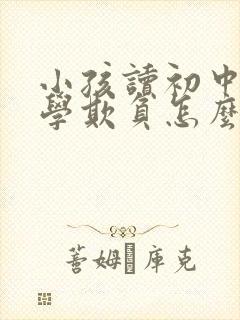 小孩讀初中
學欺負怎麼
蒼姆庫克